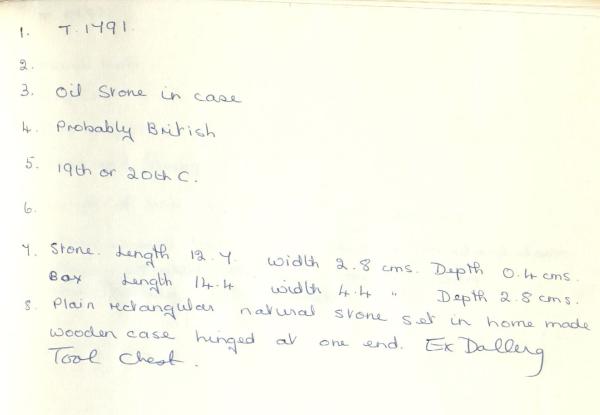 1. T.1791.
2.
3. Oil Stone in case
4. Probably British
5. 19th or 20th C.
6.
7. Stone. Length 12.7. width 2.8 cms. Depth 0.4 cms.
Box Length 14.4 width 4.4 " Depth 2.8 cms.
8. Plain rectangular natural stone set in home made
wooden case hinged at one end. Ex Dallery
Tool Chest.